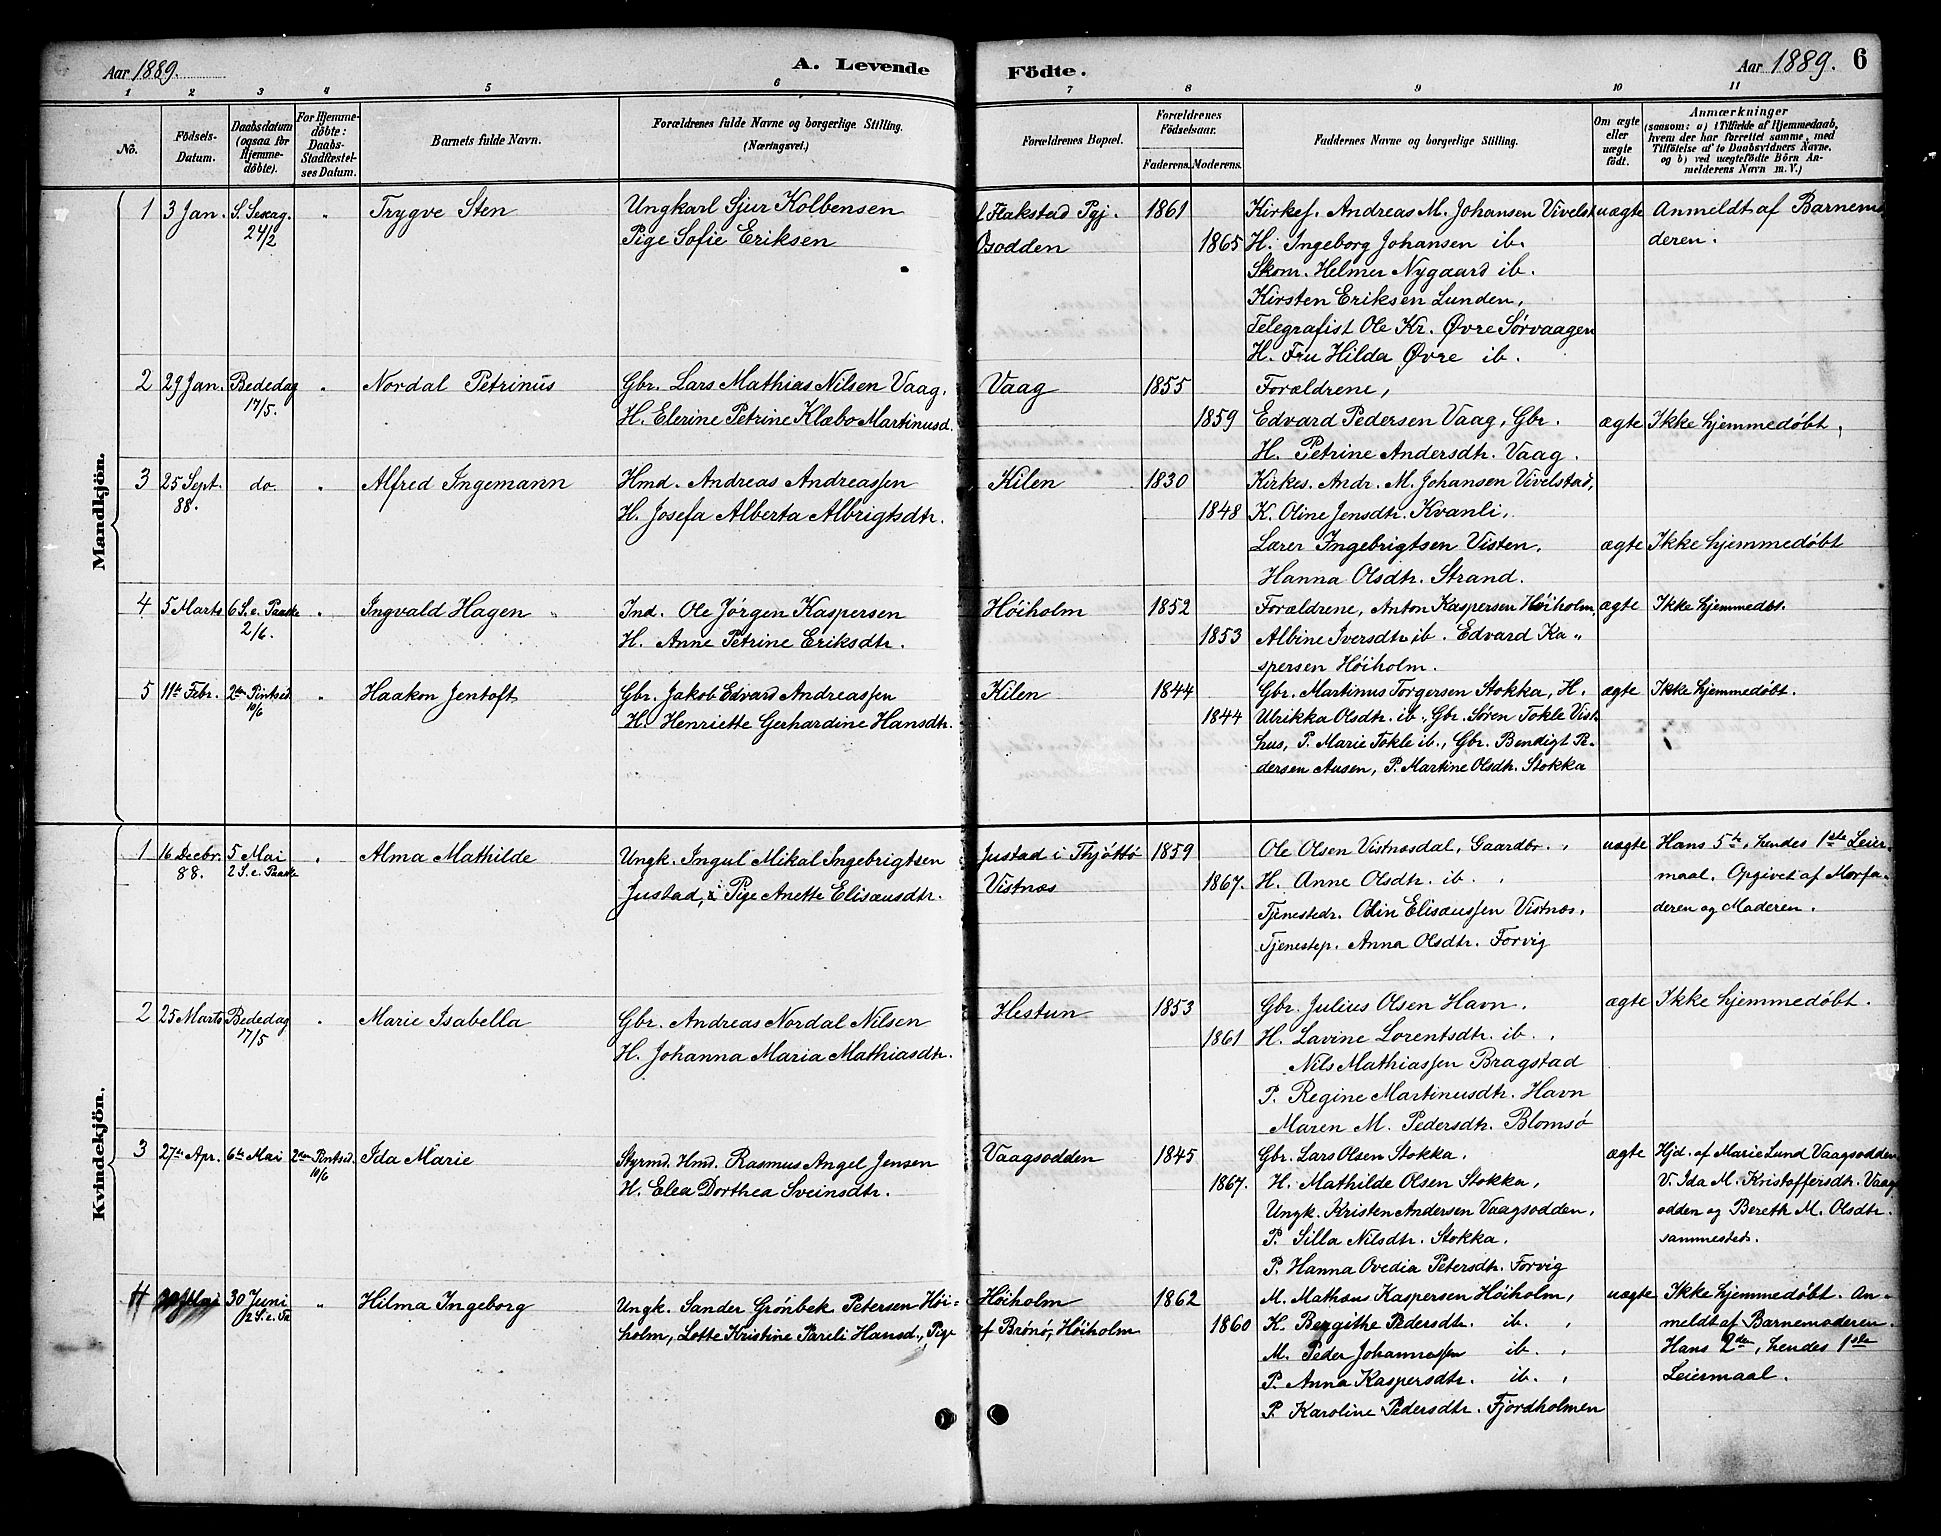 Aar 1889.
A. Levende
Födte.
Aar 1889. 6
1 2 3 4 5 6 7 8 9 10 11
No.
Födsels-Datum.
Daabsdatum (ogsaa for Hjemme-döbte).
For Hjemme-döbte: Daabs-Stadfæstel-ses Datum.
Barnets fulde Navn.
Forældrenes fulde Navne og borgerlige Stilling. (Næringsvei.)
Forældrenes Bopæl.
Forældrenes Födselsaar.
Faderens. Moderens.
Faddernes Navne og borgerlige Stilling.
Om ægte eller uægte födt.
Anmærkninger
(saasom: a) i Tilfælde af Hjemmedaab, hvem der har forrettet samme, med Tilföielse af to Daabsvidners Navne, og b) ved uægtefödte Börn An-melderens Navn m. V.)
Mandkjön.
1 3 Jan. S. Sexag. " Trygve Sten Ungkarl Sjur Kolbensen f Flakstad Pgj. 1861 Kirkef. Andreas M. Johansen Vivelst uægte Anmeldt af Barnemo
24/2 Pige Sofie Eriksen Osodden 1865 H. Ingeborg Johansen ib. deren.
Skom. Helmer Nygaard ib.
Kirsten Eriksen Lunden,
Telegrafist Ole Kr. Øvre Sørvaagen
H. Fru Hilda Øvre ib.
2 29 Jan. Bededag " Nordal Petrinus Gbr. Lars Mathias Nilsen Vaag. Vaag 1855 Forældrene,
17/5. H. Elerine Petrine Klæbo Martinusd. 1859 Edvard Pedersen Vaag, Gbr. ægte Ikke hjemmedøbt.
H. Petrine Andersdtr. Vaag.
3 25 Sept. do. " Alfred Ingemann Hmd. Andreas Andreassen Kilen 1830 Kirkes. Andr. M. Johansen Vivelstad,
88. H. Josefa Alberta Albrigtsdtr. 1848 K. Oline Jensdtr. Kvanli,
Lærer Ingebrigtsen Visten, ægte Ikke hjemmedøbt
Hanna Olsdtr. Strand.
4 5 Marts 6 S. e. Paaske " Ingvald Hagen Ind. Ole Jørgen Kaspersen Høiholm 1852 Forældrene, Anton Kaspersen Høiholm, ægte Ikke hjemmedøbt.
2/6. H. Anne Petrine Eriksdtr. 1853 Albine Iversdtr. ib. Edvard Ka-
spersen Høiholm.
5 11te Febr. 2den Pintsed " Haakon Jentoft Gbr. Jakob Edvard Andreassen Kilen 1844 Gbr. Martinus Torgersen Stokka, H. ægte Ikke hjemmedøbt.
10/6 H. Henriette Gerhardine Hansdtr. 1844 Ulrikka Olsdtr. ib. Gbr. Søren Tokle Vist-
hus, P. Marie Tokle ib., Gbr. Bendigt Pe-
dersen Ausen, P. Martine Olsdtr. Stokka
Kvindekjön.
1 16 Decbr. 5 Mai " Alma Mathilde Ungk. Ingul Mikal Ingebrigtsen Justad i Thjøttø 1859 Ole Olsen Vistnæsdal, Gaardbr. uægte Hans 5te, hendes 1ste Leier-
88. 2 S. e. Paaske Justad, & Pige Anette Elisæusdtr. Vistnæs 1867. H. Anne Olsdtr. ib. maal. Opgivet af Morfa-
Tjenestedr. Odin Elisæussen Vistnæs. deren og Moderen.
Tjenestep. Anna Olsdtr. Forvig
2 25 Marts Bededag " Marie Isabella Gbr. Andreas Nordal Nilsen Hestun 1853 Gbr. Julius Olsen Havn. ægte Ikke hjemmedøbt.
17/5 H. Johanna Maria Mathiasdtr. 1861 H. Lavine Lorentsdtr. ib.
Nils Mathiassen Bragstad
P. Regine Martinusdtr. Havn
Maren M. Pedersdtr. Blomsø
3 27de Apr. 6te Mai 2den Pintsed. Ida Marie Styrmd. Hmd. Rasmus Angel Jensen Vaagsodden 1845 Gbr. Lars Olsen Stokka. ægte Hjd. af Marie Lund Vaagsodden
10/6 H. Elea Dorthea Sveinsdtr. 1867. H. Mathilde Olsen Stokka, V. Ida M. Kristoffersdtr. Vaags
Ungk. Kristen Andersen Vaagsodden, odden og Bereth M. Olsdtr.
P. Silla Nilsdtr. Stokka. sammested.
P. Hanna Ovedia Petersdtr. Forvig
4 30 Juni " Hilma Ingeborg Ungk. Sander Grønbek Petersen Høi- Høiholm 1862 M. Mathæus Kaspersen Høiholm, uægte Ikke hjemmedøbt. An-
holm, Lotte Kristine Pareli Hansd., Pige af Brønø, Høiholm 1860 K. Bergithe Pedersdtr. ib. meldt af Barnemoderen.
M. Peder Johannessen ib. Hans 2den, hendes 1ste
P. Anna Kaspersdtr. ib. Leiermaal.
P. Karoline Pedersdtr. Fjordholmen